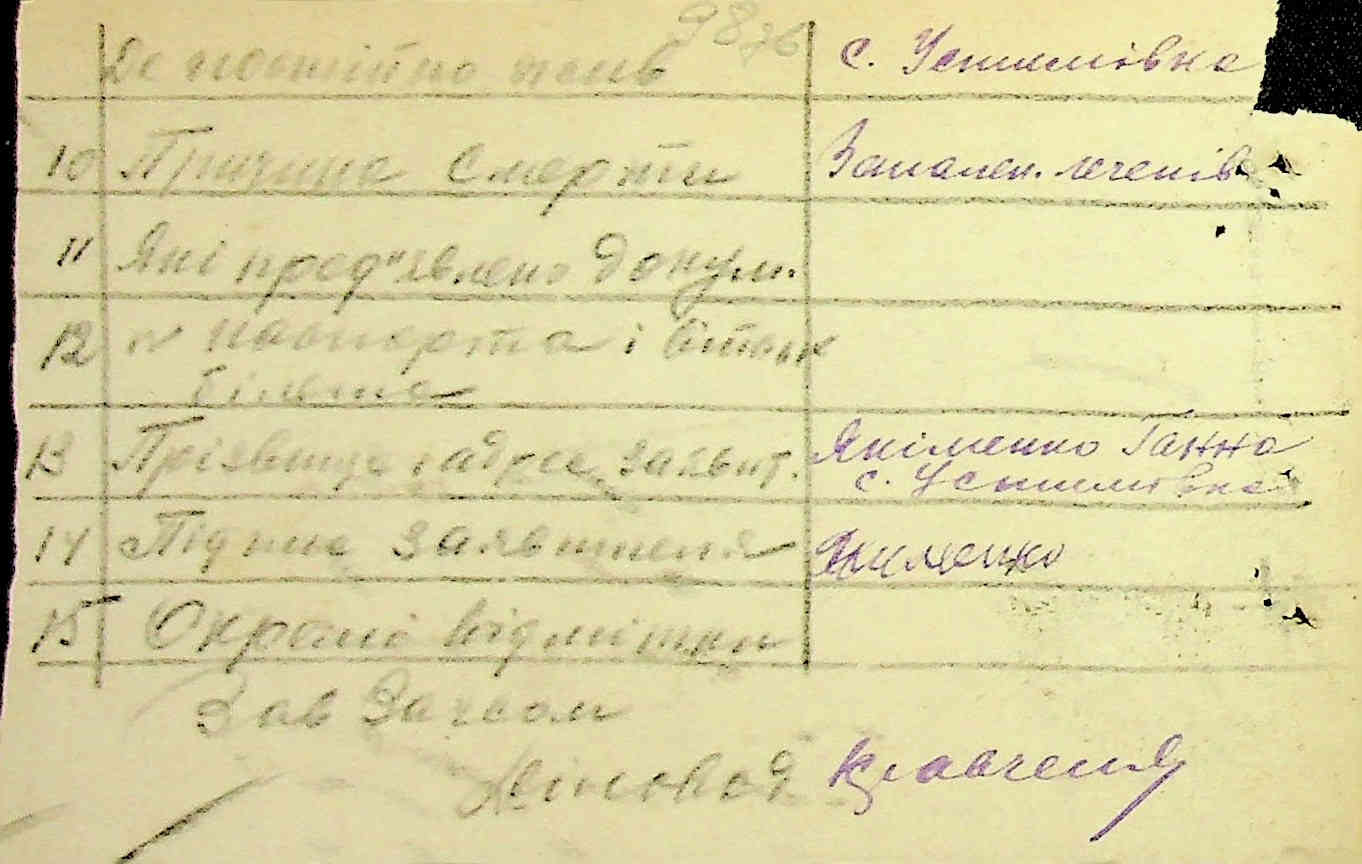 98 76
Де постійно жив с. Устимовка
10 Причина смерти Запален. легенів
11 Які пред"явлено докум.
12 № паспорта і
13 Прізвище і адреса заявит. Якіменко Ганна
с. Устимовка
14 Підпис заявителя Якименко
15 Окремі відмітки
Зав Загсом
Діловод